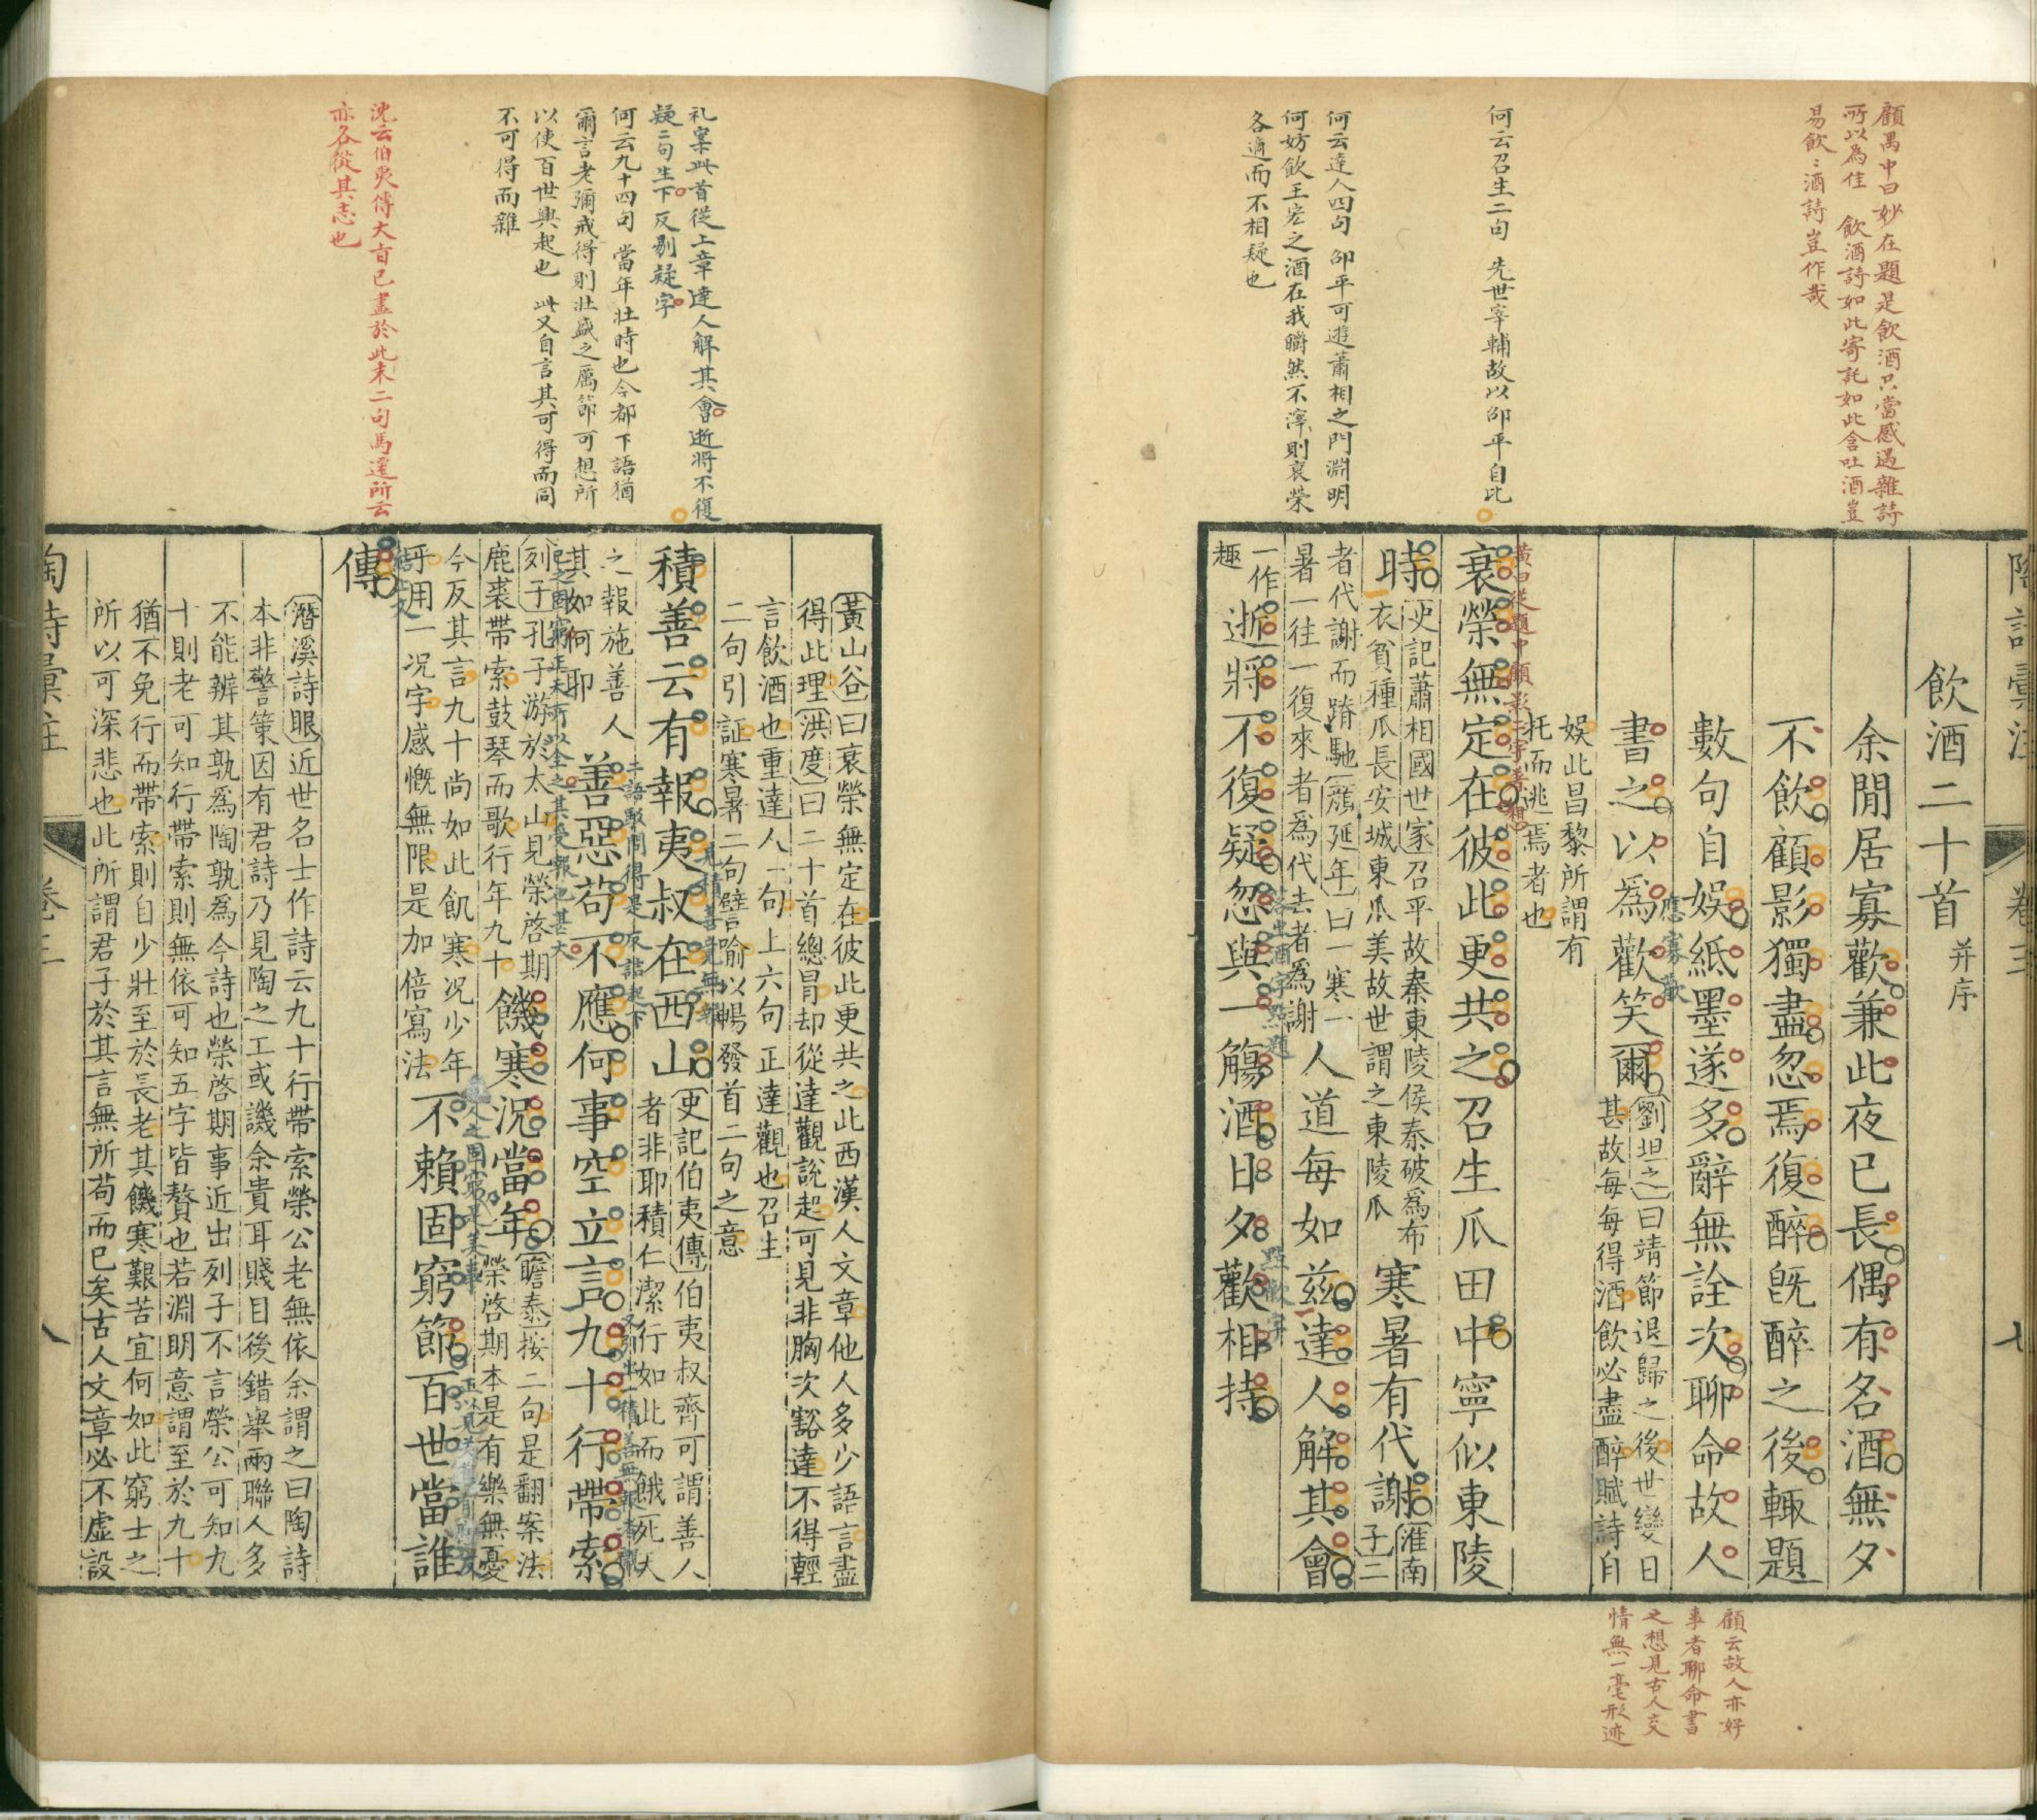 顧禺中曰妙在題是飲酒只當感遇雜詩
所以為佳 飲酒詩如此寄託如此含吐酒豈
易飲〻酒詩豈作哉
何云召生二句 先世宰輔故以邵平自比
何云達人四句 邵平可遊蕭相之門淵明
何妨飲王宏之酒在我皭然不滓則衰榮
各適而不相疑也
卷三
七
飲酒二十首 并序
余閒居寡歡兼此夜已長偶有名酒無夕
不飲顧影獨盡忽焉復醉旣醉之後輒題
數句自娛紙墨遂多辭無詮次聊命故人
應寡歡
書之以爲歡笑爾
劉坦之曰靖節退歸之後世變日
甚故每每得酒飲必盡醉賦詩自
娛此昌黎所謂有
托而逃焉者也
黃曰從題中顧影二字着想
衰榮無定在彼此更共之召生瓜田中寧似東陵
時
史記蕭相國世家召平故秦東陵侯秦破爲布
衣貧種瓜長安城東瓜美故世謂之東陵瓜
寒暑有代謝
淮南
子二
者代謝而踳馳顏延年曰一寒一
暑一往一復來者爲代去者爲謝
人道每如茲達人解其會
一作
趣
逝將不復疑忽與一觴酒日夕歡相持
點歡字
顧云故人亦好
事者聊命書
之想見古人交
情無一毫形迹
礼案此首從上章達人解其會逝將不復
疑二句生下反剔疑字
何云九十四句 當年壯時也今都下語猶
爾言老彌戒得則壯盛之厲節可想所
以使百世興起也 此又自言其可得而同
不可得而雜
沈云伯夷傳大旨已盡於此末二句馬遷所云
亦各從其志也
黃山谷曰衰榮無定在彼此更共之此西漢人文章他人多少語言盡
得此理洪度曰二十首總冒却從達觀說起可見非胸次豁達不得輕
言飲酒也重達人一句上六句正達觀也召生
二句引証寒暑二句譬喻以暢發首二句之意
積善云有報夷叔在西山
史記伯夷傳伯夷叔齊可謂善人
者非耶積仁潔行如此而餓死天
之報施善人
其如何耶
善惡苟不應何事空立言九十行帶索
列子孔子游於太山見榮啓期
鹿裘帶索鼓琴而歌行年九十
饑寒況當年
瞻泰按二句是翻案法
榮啓期本是有樂無憂
今反其言九十尚如此飢寒况少年
乎用一况字感慨無限是加倍寫法
不賴固窮節百世當誰
傳
潛溪詩眼近世名士作詩云九十行帶索榮公老無依余謂之曰陶詩
本非警策因有君詩乃見陶之工或譏余貴耳賤目後錯舉兩聯人多
不能辨其孰爲陶孰爲今詩也榮啓期事近出列子不言榮公可知九
十則老可知行帶索則無依可知五字皆贅也若淵明意謂至於九十
猶不免行而帶索則自少壯至於長老其饑寒艱苦宜何如此窮士之
所以可深悲也此所謂君子於其言無所苟而已矣古人文章必不虛設
陶詩彙註
卷三
八